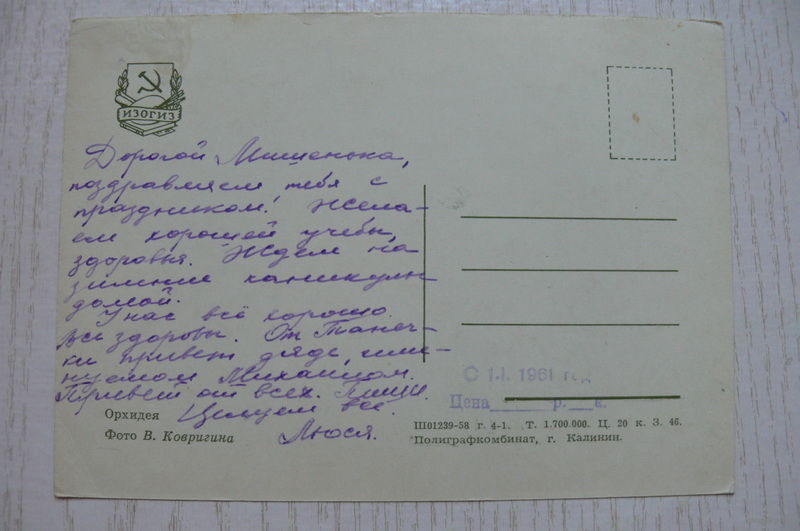 ИЗОГИЗ
Дорогой Мишенька,
поздравляем тебя с
праздником! Жела-
ем хорошей учебы,
здоровья. Ждем на
зимние каникулы
домой.
У нас всё хорошо.
Все здоровы. От Танеч-
ки привет дяде, име-
нуемом Михаилом.
Привет от всех. Пиши.
Целуем все.
Люся.
Орхидея
Фото В. Ковригина
С 1.I. 1961 год
Цена р. к.
Ш01239-58 г. 4-1. Т. 1.700.000. Ц. 20 к. З. 46.
Полиграфкомбинат, г. Калинин.